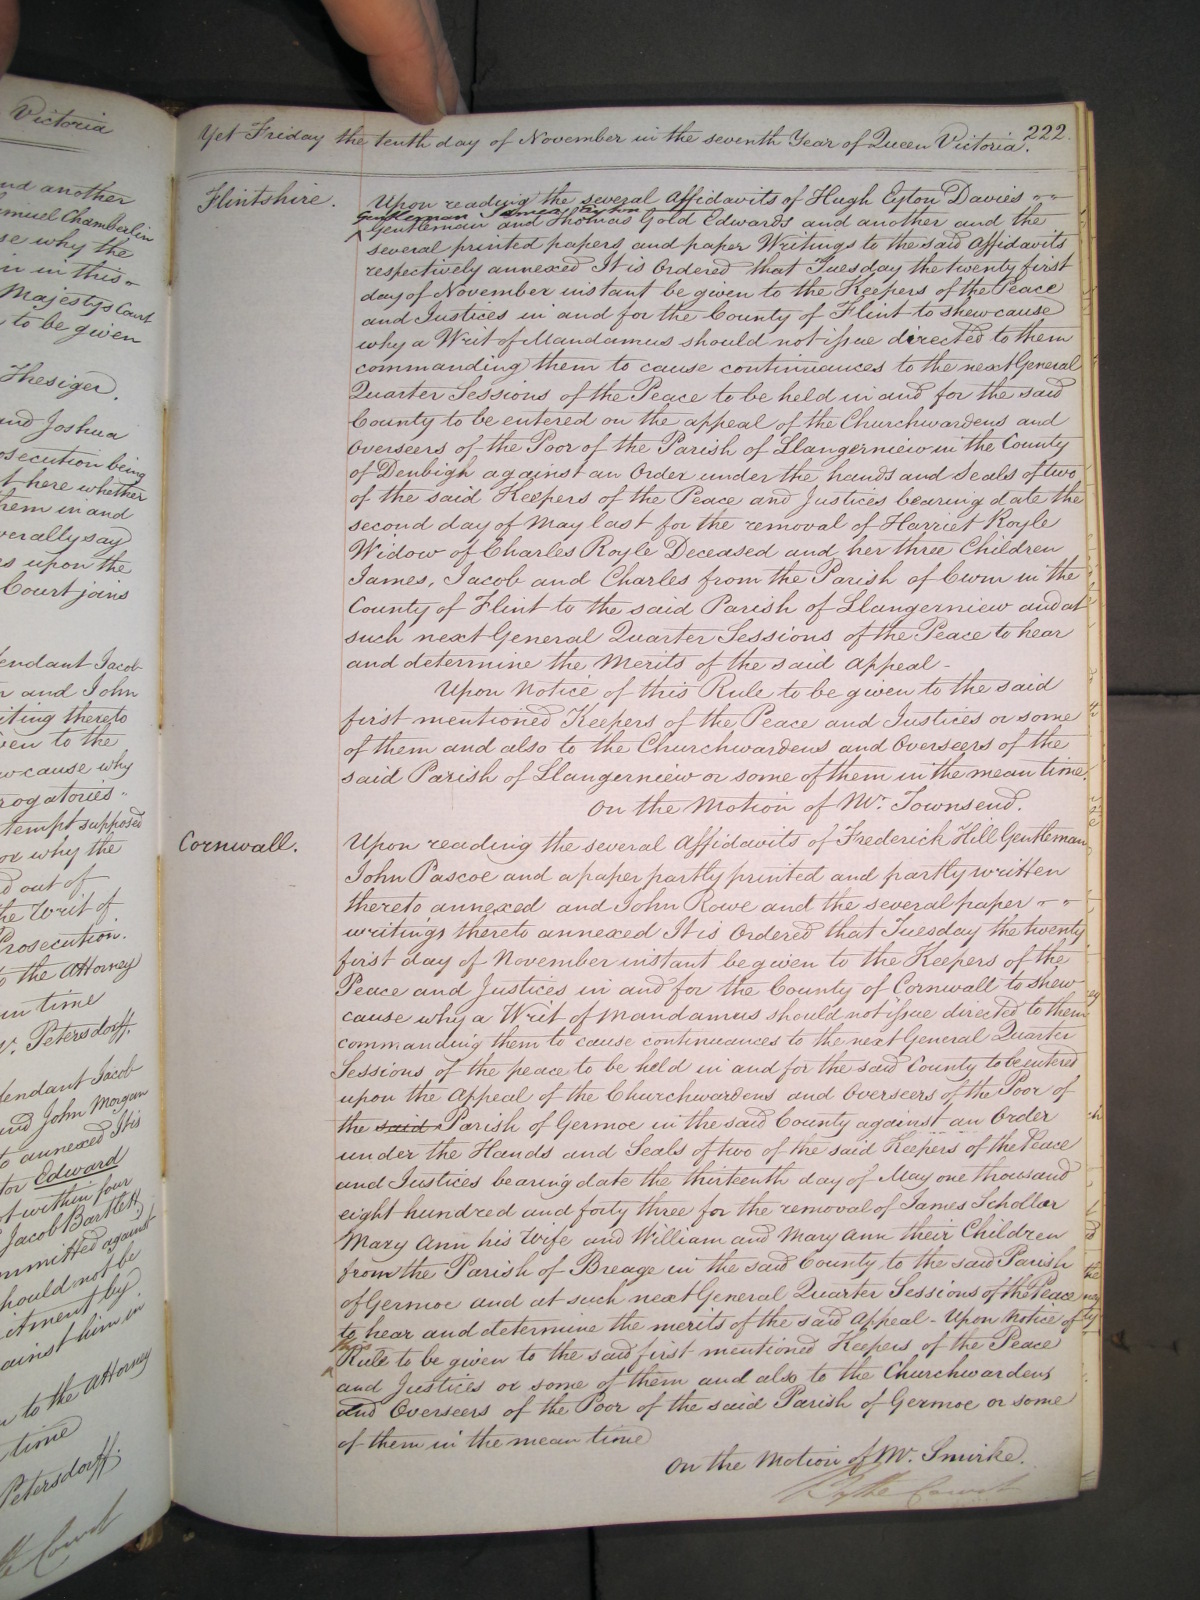 Victoria
nd another
amuel Chamberlin
se why the
in in this
Majestys Court
to be given
Thesiger.
and Joshua
osecution being
t here whether
hem in and
verally say
es upon the
Court joins
endant Jacob
n and John
iting thereto
ven to the
w cause why
rogatories
tempt supposed
or why the
d out of
the Writ of
Prosecution.
to the Attorney
in time
Mr. Petersdorff.
endant Jacob
and John Morgan
to annexed It is
tor Edward
ot within four
Jacob Bartlett
ommitted against
hould not be
ictment by
ainst him in
to the Attorney
time
Petersdorff.
Court
Yet Friday the tenth day of November in the seventh Year of Queen Victoria. 222.
Flintshire. Upon reading the several Affidavits of Hugh Eyton Davies
Gentleman James Eyton
Gentleman and Thomas Gold Edwards and another and the
several printed papers and paper Writings to the said Affidavits
respectively annexed It is Ordered that Tuesday the twenty first
day of November instant be given to the Keepers of the Peace
and Justices in and for the County of Flint to shew cause
why a Writ of Mandamus should not issue directed to them
commanding them to cause continuances to the next General
Quarter Sessions of the Peace to be held in and for the said
County to be entered on the appeal of the Churchwardens and
Overseers of the Poor of the Parish of Llangerniew in the County
of Denbigh against an Order under the hands and Seals of two
of the said Keepers of the Peace and Justices bearing date the
second day of May last for the removal of Harriet Royle
Widow of Charles Royle Deceased and her three Children
James, Jacob and Charles from the Parish of Cwm in the
County of Flint to the said Parish of Llangerniew and at
such next General Quarter Sessions of the Peace to hear
and determine the Merits of the said appeal -
Upon Notice of this Rule to be given to the said
first mentioned Keepers of the Peace and Justices or some
of them and also to the Churchwardens and Overseers of the
said Parish of Llangerniew or some of them in the mean time.
On the Motion of Mr. Townsend.
Cornwall. Upon reading the several Affidavits of Frederick Hill Gentleman
John Pascoe and a paper partly printed and partly written
thereto annexed and John Rowe and the several paper
writings thereto annexed It is Ordered that Tuesday the twenty
first day of November instant be given to the Keepers of the
Peace and Justices in and for the County of Cornwall to shew
cause why a Writ of Mandamus should not issue directed to them
commanding them to cause continuances to the next General Quarter
Sessions of the peace to be held in and for the said County to be entered
upon the Appeal of the Churchwardens and Overseers of the Poor of
the said Parish of Germoe in the said County against an Order
under the Hands and Seals of two of the said Keepers of the Peace
and Justices bearing date the thirteenth day of May one thousand
eight hundred and forty three for the removal of James Schollar
Mary Ann his Wife and William and Mary Ann their Children
from the Parish of Breage in the said County to the said Parish
of Germoe and at such next General Quarter Sessions of the Peace
to hear and determine the merits of the said Appeal - Upon Notice of
this
Rule to be given to the said first mentioned Keepers of the Peace
and Justices or some of them and also to the Churchwardens
and Overseers of the Poor of the said Parish of Germoe or some
of them in the mean time
On the Motion of Mr. Smirke.
By the Court